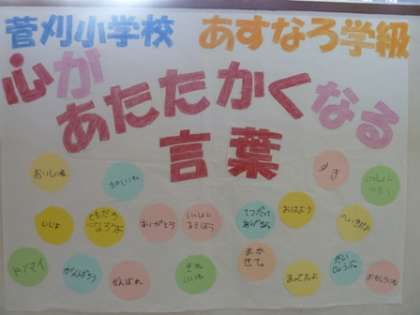 菅刈小学校 あすなろ学級
心が
あたたかくなる
言葉
おいしいね
かわいいね
すき
いいよ
ともだち
になろうよ
ありがとう
いっしょに
あそぼう
てつだって
あげる
おはよう
ドンマイ
がんばろう
がんばれ
きれ
いいね
まか
せて。
あってたよ
だい
じょうぶ
おもしろいね